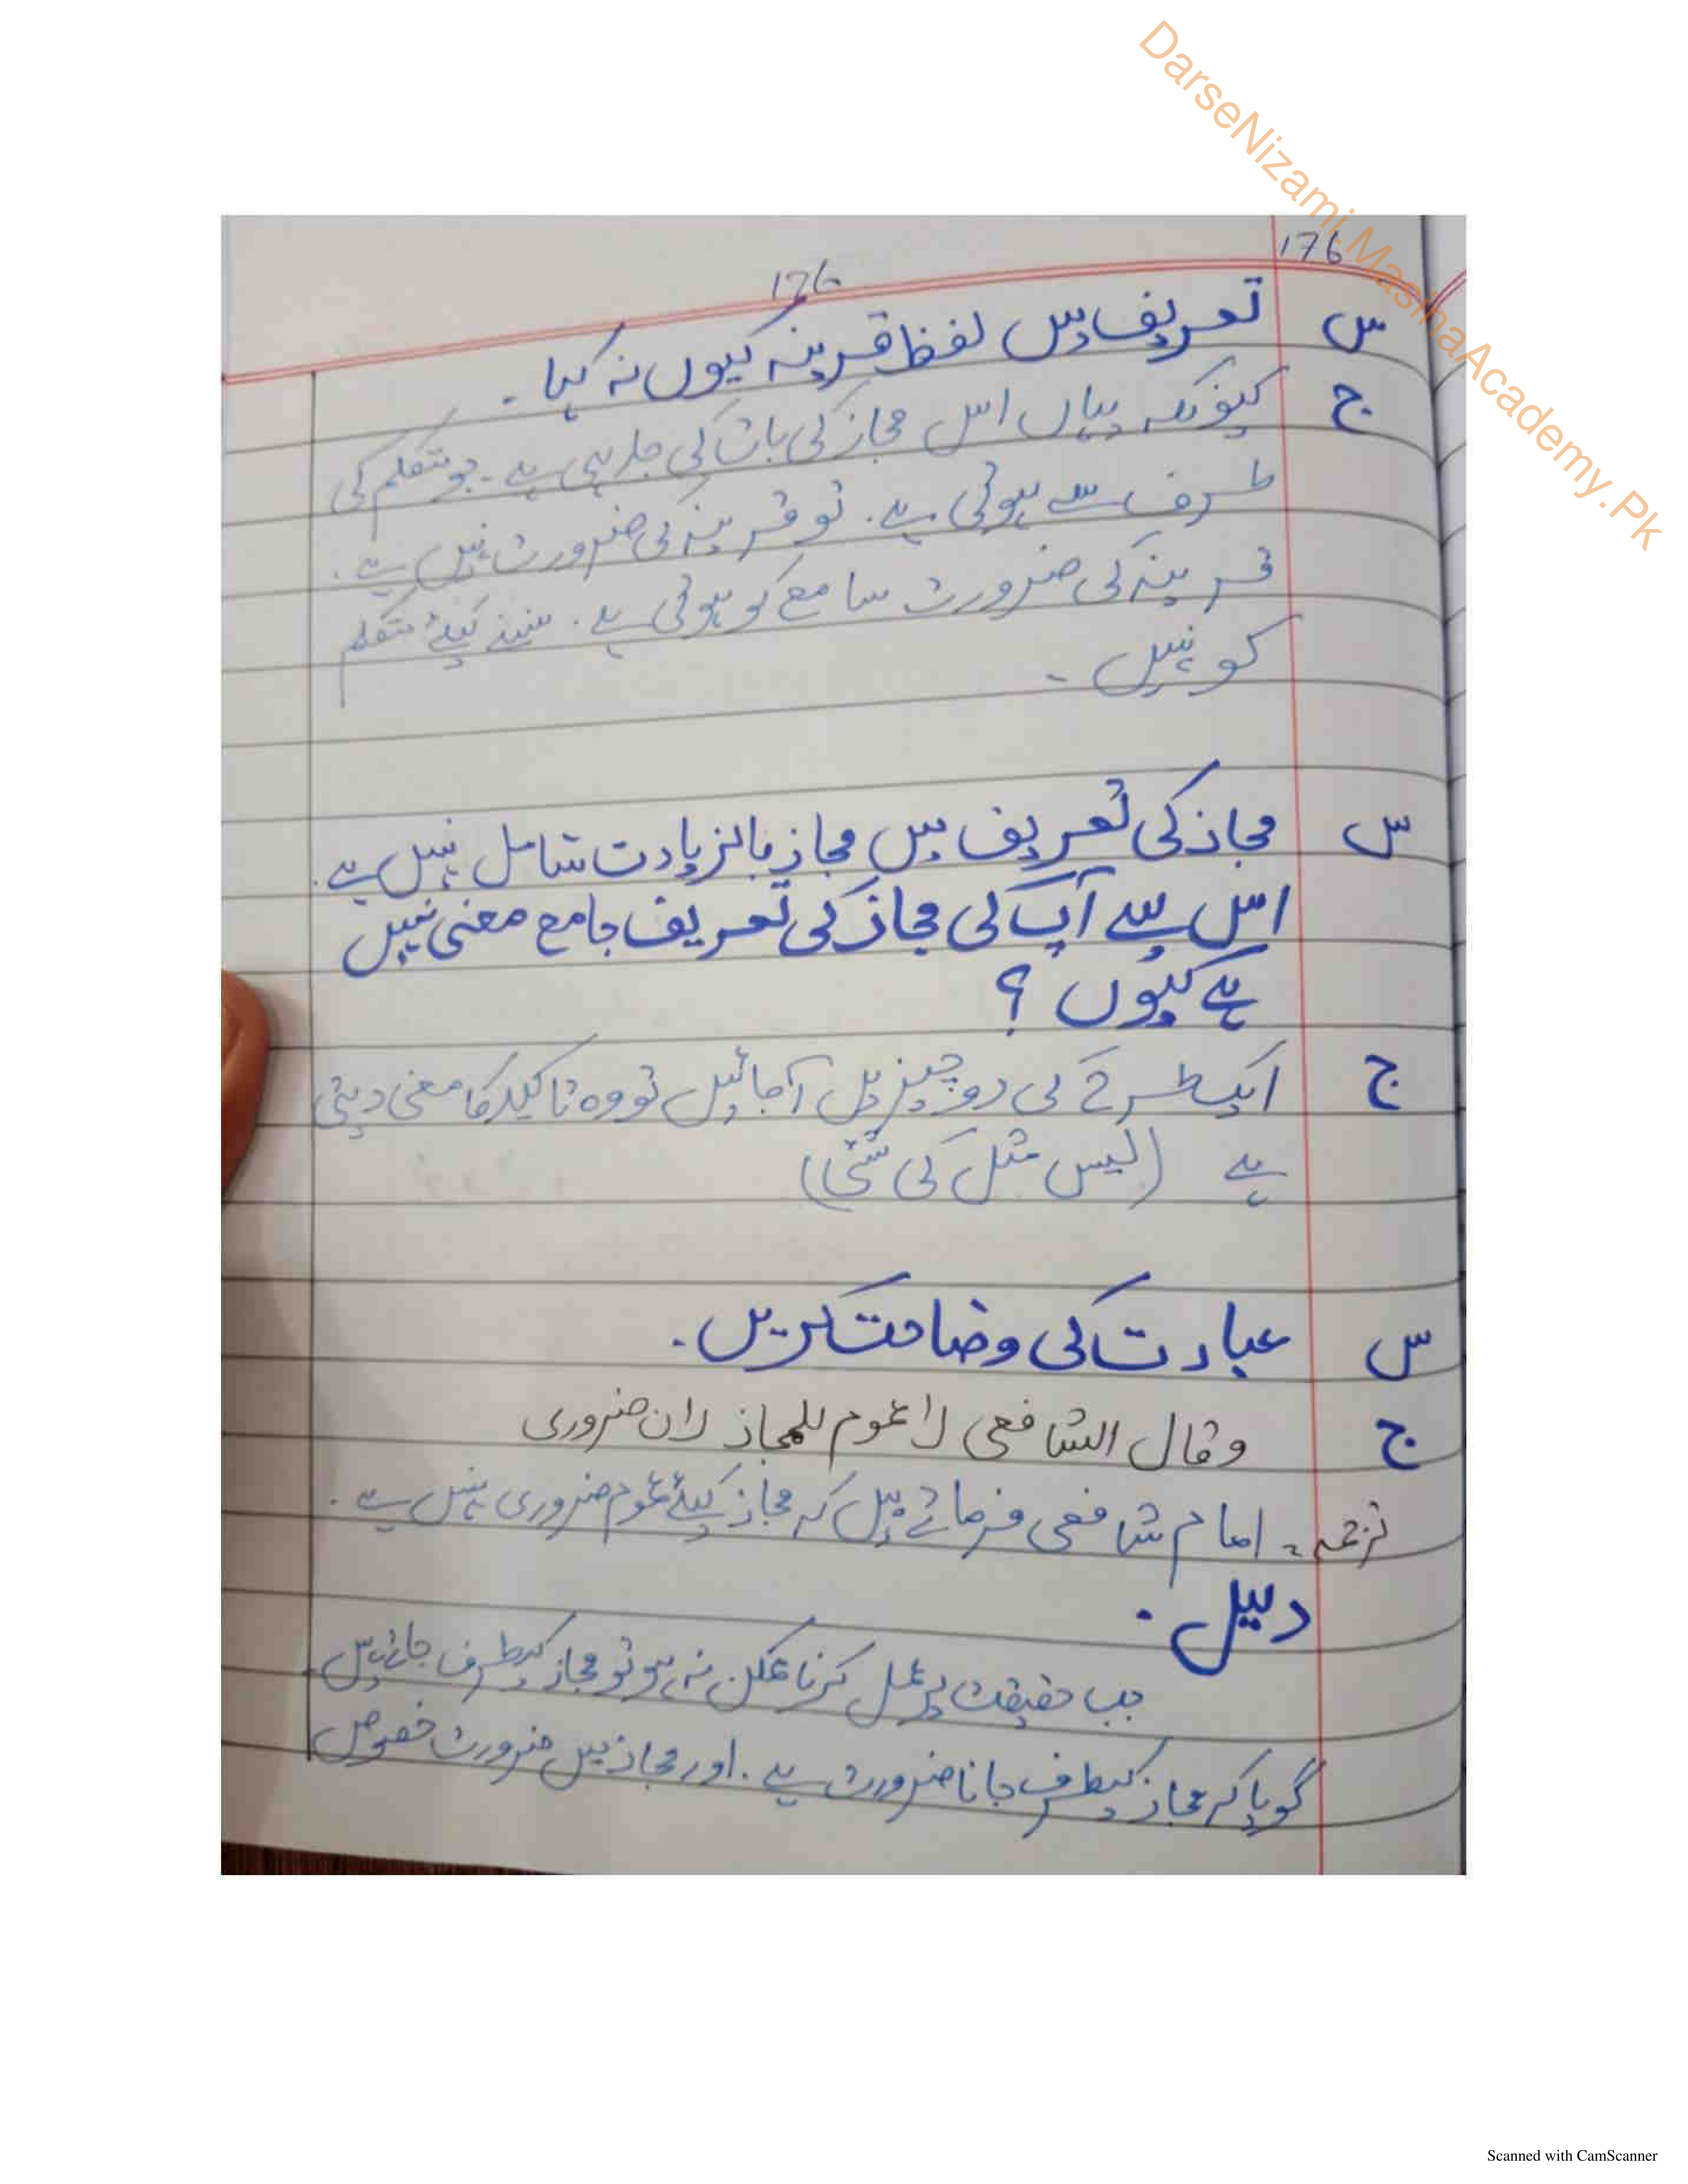 DarseNizami.MasihaAcademy.Pk
176
176
س تعریف میں لفظ قرینہ کیوں نہ کہا۔
ج کیونکہ یہاں اس مجاز کی بات کی جا رہی ہے۔ جو متکلم کی
طرف سے ہوتی ہے۔ تو قرینہ کی ضرورت نہیں ہے۔
قرینہ کی ضرورت سامع کو ہوتی ہے۔ سننے کیلئے متکلم
کو نہیں۔
س مجاز کی تعریف میں مجاز بالزیادت شامل نہیں ہے۔
اس سے آپ کی مجاز کی تعریف جامع معنی نہیں
ہے کیوں ؟
ج ایک طرح کی دو چیزیں آجائیں تو وہ تاکید کا معنی دیتی
ہے (لیس مثل کی شئی)
س عبارت کی وضاحت کریں۔
ج وقال الشافعی لا عموم للمجاز لان ضروری
ترجمہ۔ امام شافعی فرماتے ہیں کہ مجاز کیلئے عموم ضروری نہیں ہے۔
دلیل۔
جب حقیقت پر عمل کرنا ممکن نہ ہو تو مجاز کیطرف جاتے ہیں۔
گویا کہ مجاز کیطرف جانا ضرورت ہے۔ اور مجاز میں ضرورت خصوص
Scanned with CamScanner